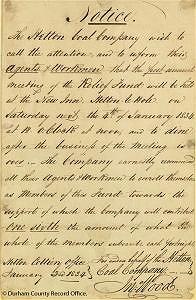 Notice.
The Hetton Coal Company wish to
call the attention, and to inform their
Agents & Workmen that the first annual
meeting of the Relief Fund will be held
at the New Inn, Hetton le Hole, on
Saturday next, the 4th of January 1834
at 11 o'Clock at noon, and to dine
after the business of the Meeting is
over. The Company earnestly commend
all their Agents & Workmen to enroll themselves
as Members of this Fund towards the
support of which the Company will contribute
one sixth the amount of what the
whole of the members subscribe each fortnight
Hetton Colliery Office
January 2nd 1834
For and on behalf of the Hetton
Coal Company
Wood
© Durham County Record Office.